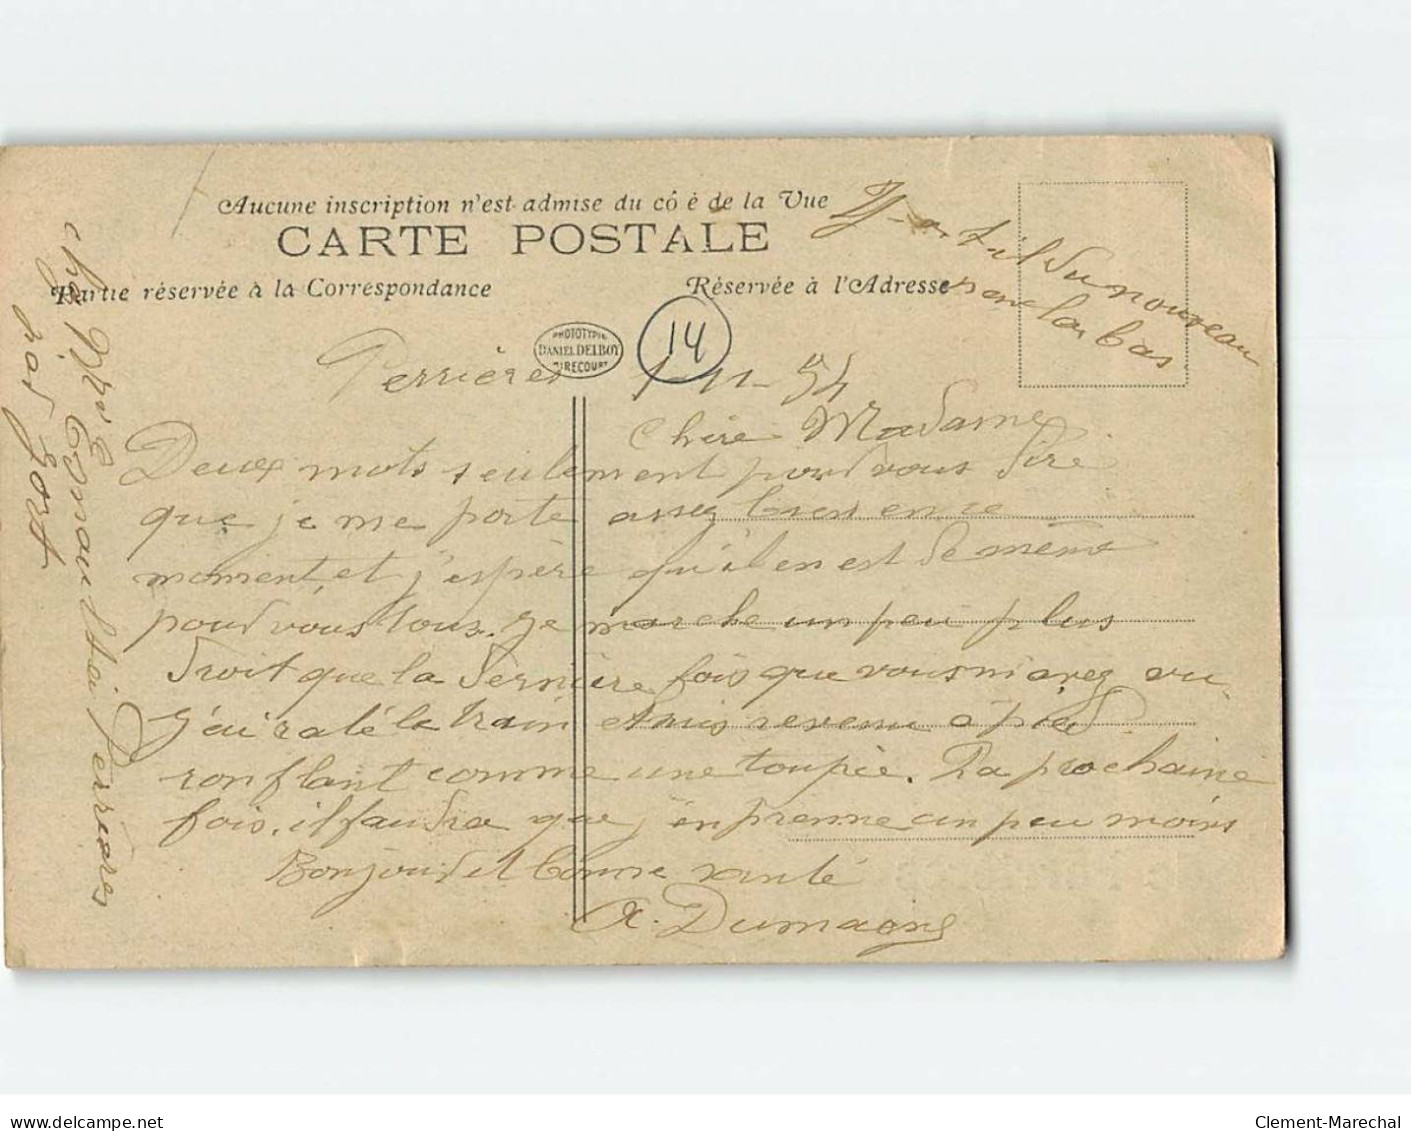 Aucune inscription n'est admise du cô é de la Vue
CARTE POSTALE
Partie réservée à la Correspondance
Réservée à l'Adresse
Y-a-t-il du nouveau
la bas
PHOTOTYPIE
DANIEL DELBOY
MIRECOURT
14
Perrières 1-11-54
Chère Madame
Deux mots seulement pour vous dire
que je me porte assez bien en ce
moment, et j'espère qu'il en est de même
pour vous tous. Je marche un peu plus
droit que la dernière fois que vous m'avez vu.
J'ai raté le train et suis revenu à pied
ronflant comme une toupie. La prochaine
fois, il faudra que j'en prenne un peu moins
Bonjour et bonne santé
A. Dumaine
chez Mr
Perrières
par Jort
delcampe.net
Clement-Marechal